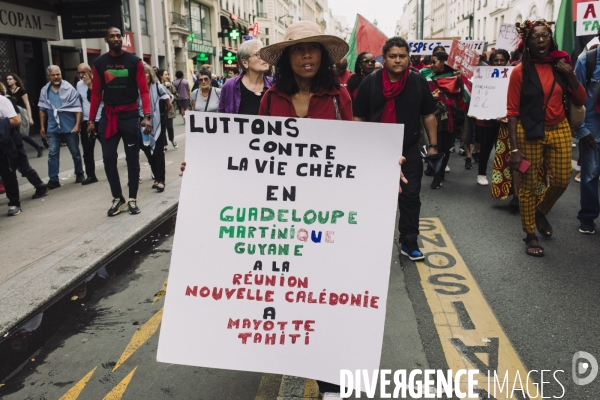 COPAM
LUTTONS
CONTRE
LA VIE CHÈRE
EN
GUADELOUPE
MARTINIQUE
GUYANE
A LA
RÉUNION
NOUVELLE CALÉDONIE
A
MAYOTTE
TAHITI
DIVERGENCE IMAGES